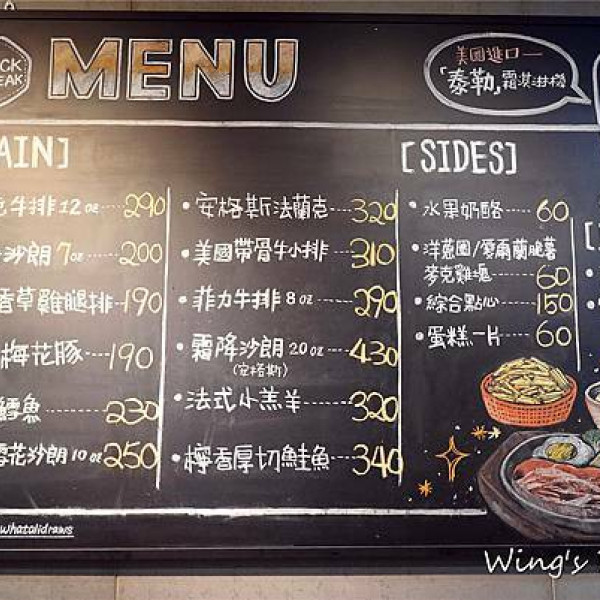 MENU
美國進口—
「泰勒」霜淇淋機
[SIDES]
牛排12oz---290
沙朗 7oz---200
香草雞腿排--190
梅花豚---190
鱈魚-----230
雪花沙朗10oz 250
• 安格斯法蘭克---320
• 美國帶骨牛小排--310
• 菲力牛排 8oz----290
• 霜降沙朗 20oz---430
(安格斯)
• 法式小羔羊----320
• 檸香厚切鮭魚---340
• 水果奶酪----60
• 洋蔥圈/愛爾蘭脆薯
麥克雞塊-----60
• 綜合點心-----150
• 蛋糕一片----60
whatalidraws
Wing's